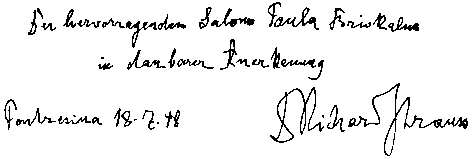 Der hervorragenden Salome Paula
in dankbarer Anerkennung
Pontresina 18.7.48 Richard Strauss